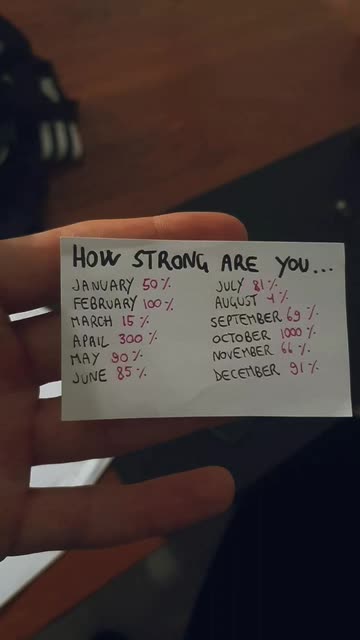 HOW STRONG ARE YOU...
JANUARY 50%
FEBRUARY 100%
MARCH 15%
APRIL 300%
MAY 90%
JUNE 85%
JULY 81%
AUGUST 1%
SEPTEMBER 69%
OCTOBER 1000%
NOVEMBER 66%
DECEMBER 91%